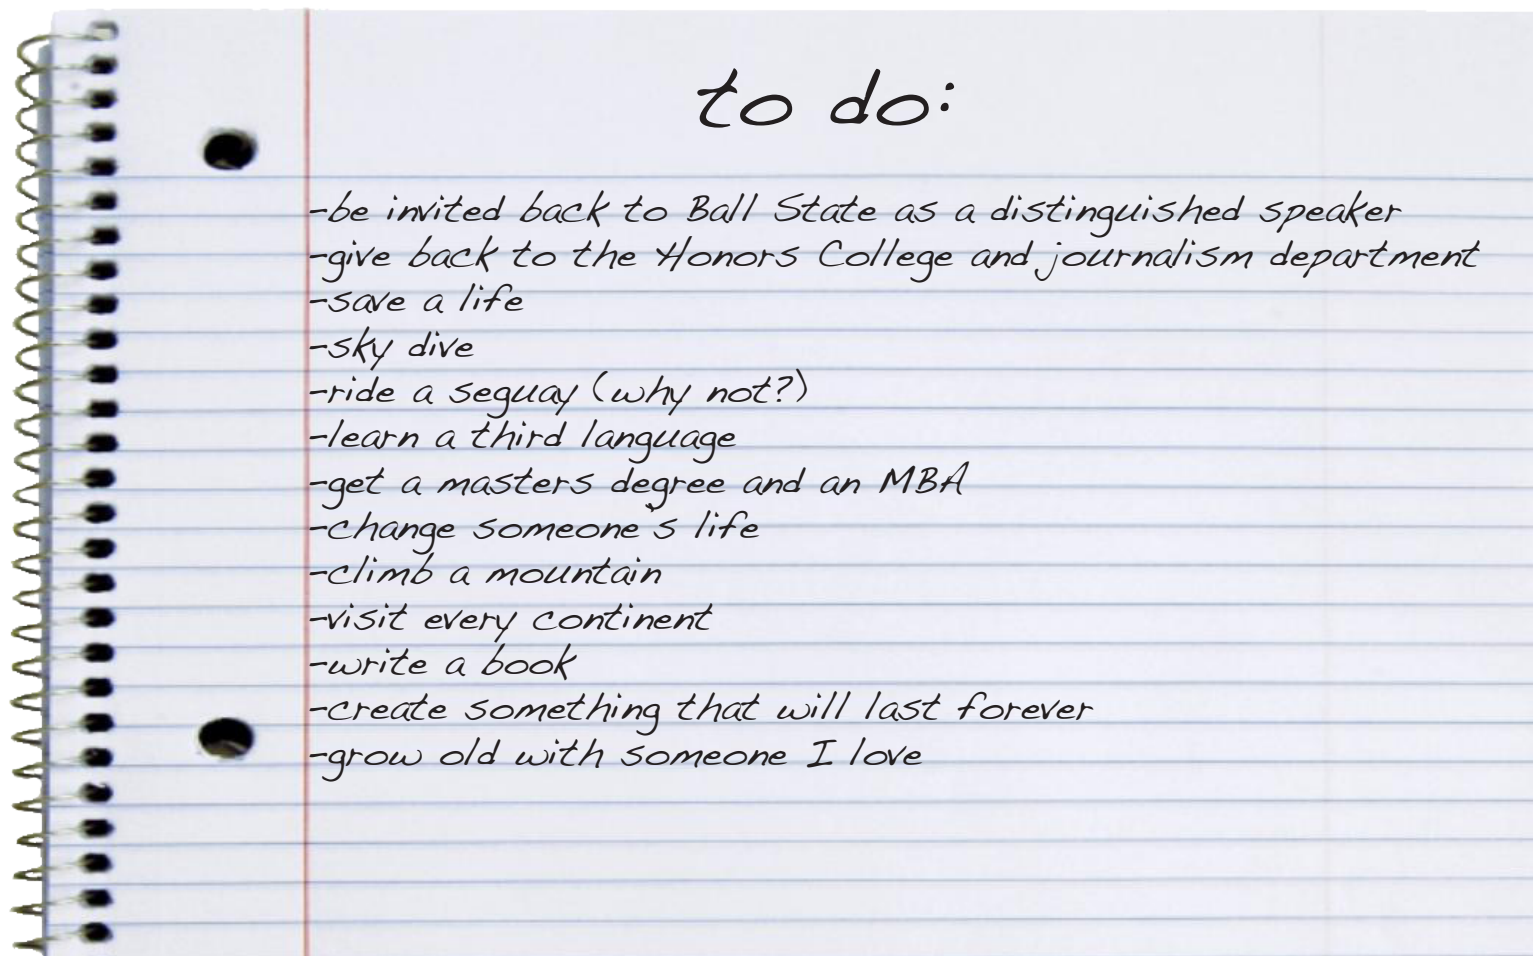 to do:
-be invited back to Ball State as a distinguished speaker
-give back to the Honors College and journalism department
-save a life
-sky dive
-ride a seguay (why not?)
-learn a third language
-get a masters degree and an MBA
-change someone's life
-climb a mountain
-visit every continent
-write a book
-create something that will last forever
-grow old with someone I love